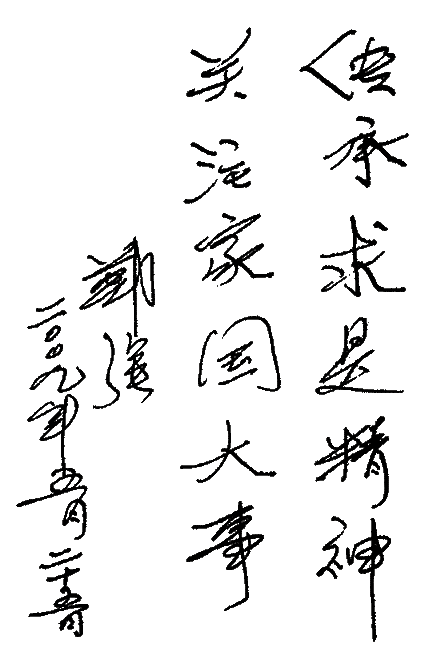 传承求是精神
关注家国大事
郑强
二〇〇九年五月二十五日